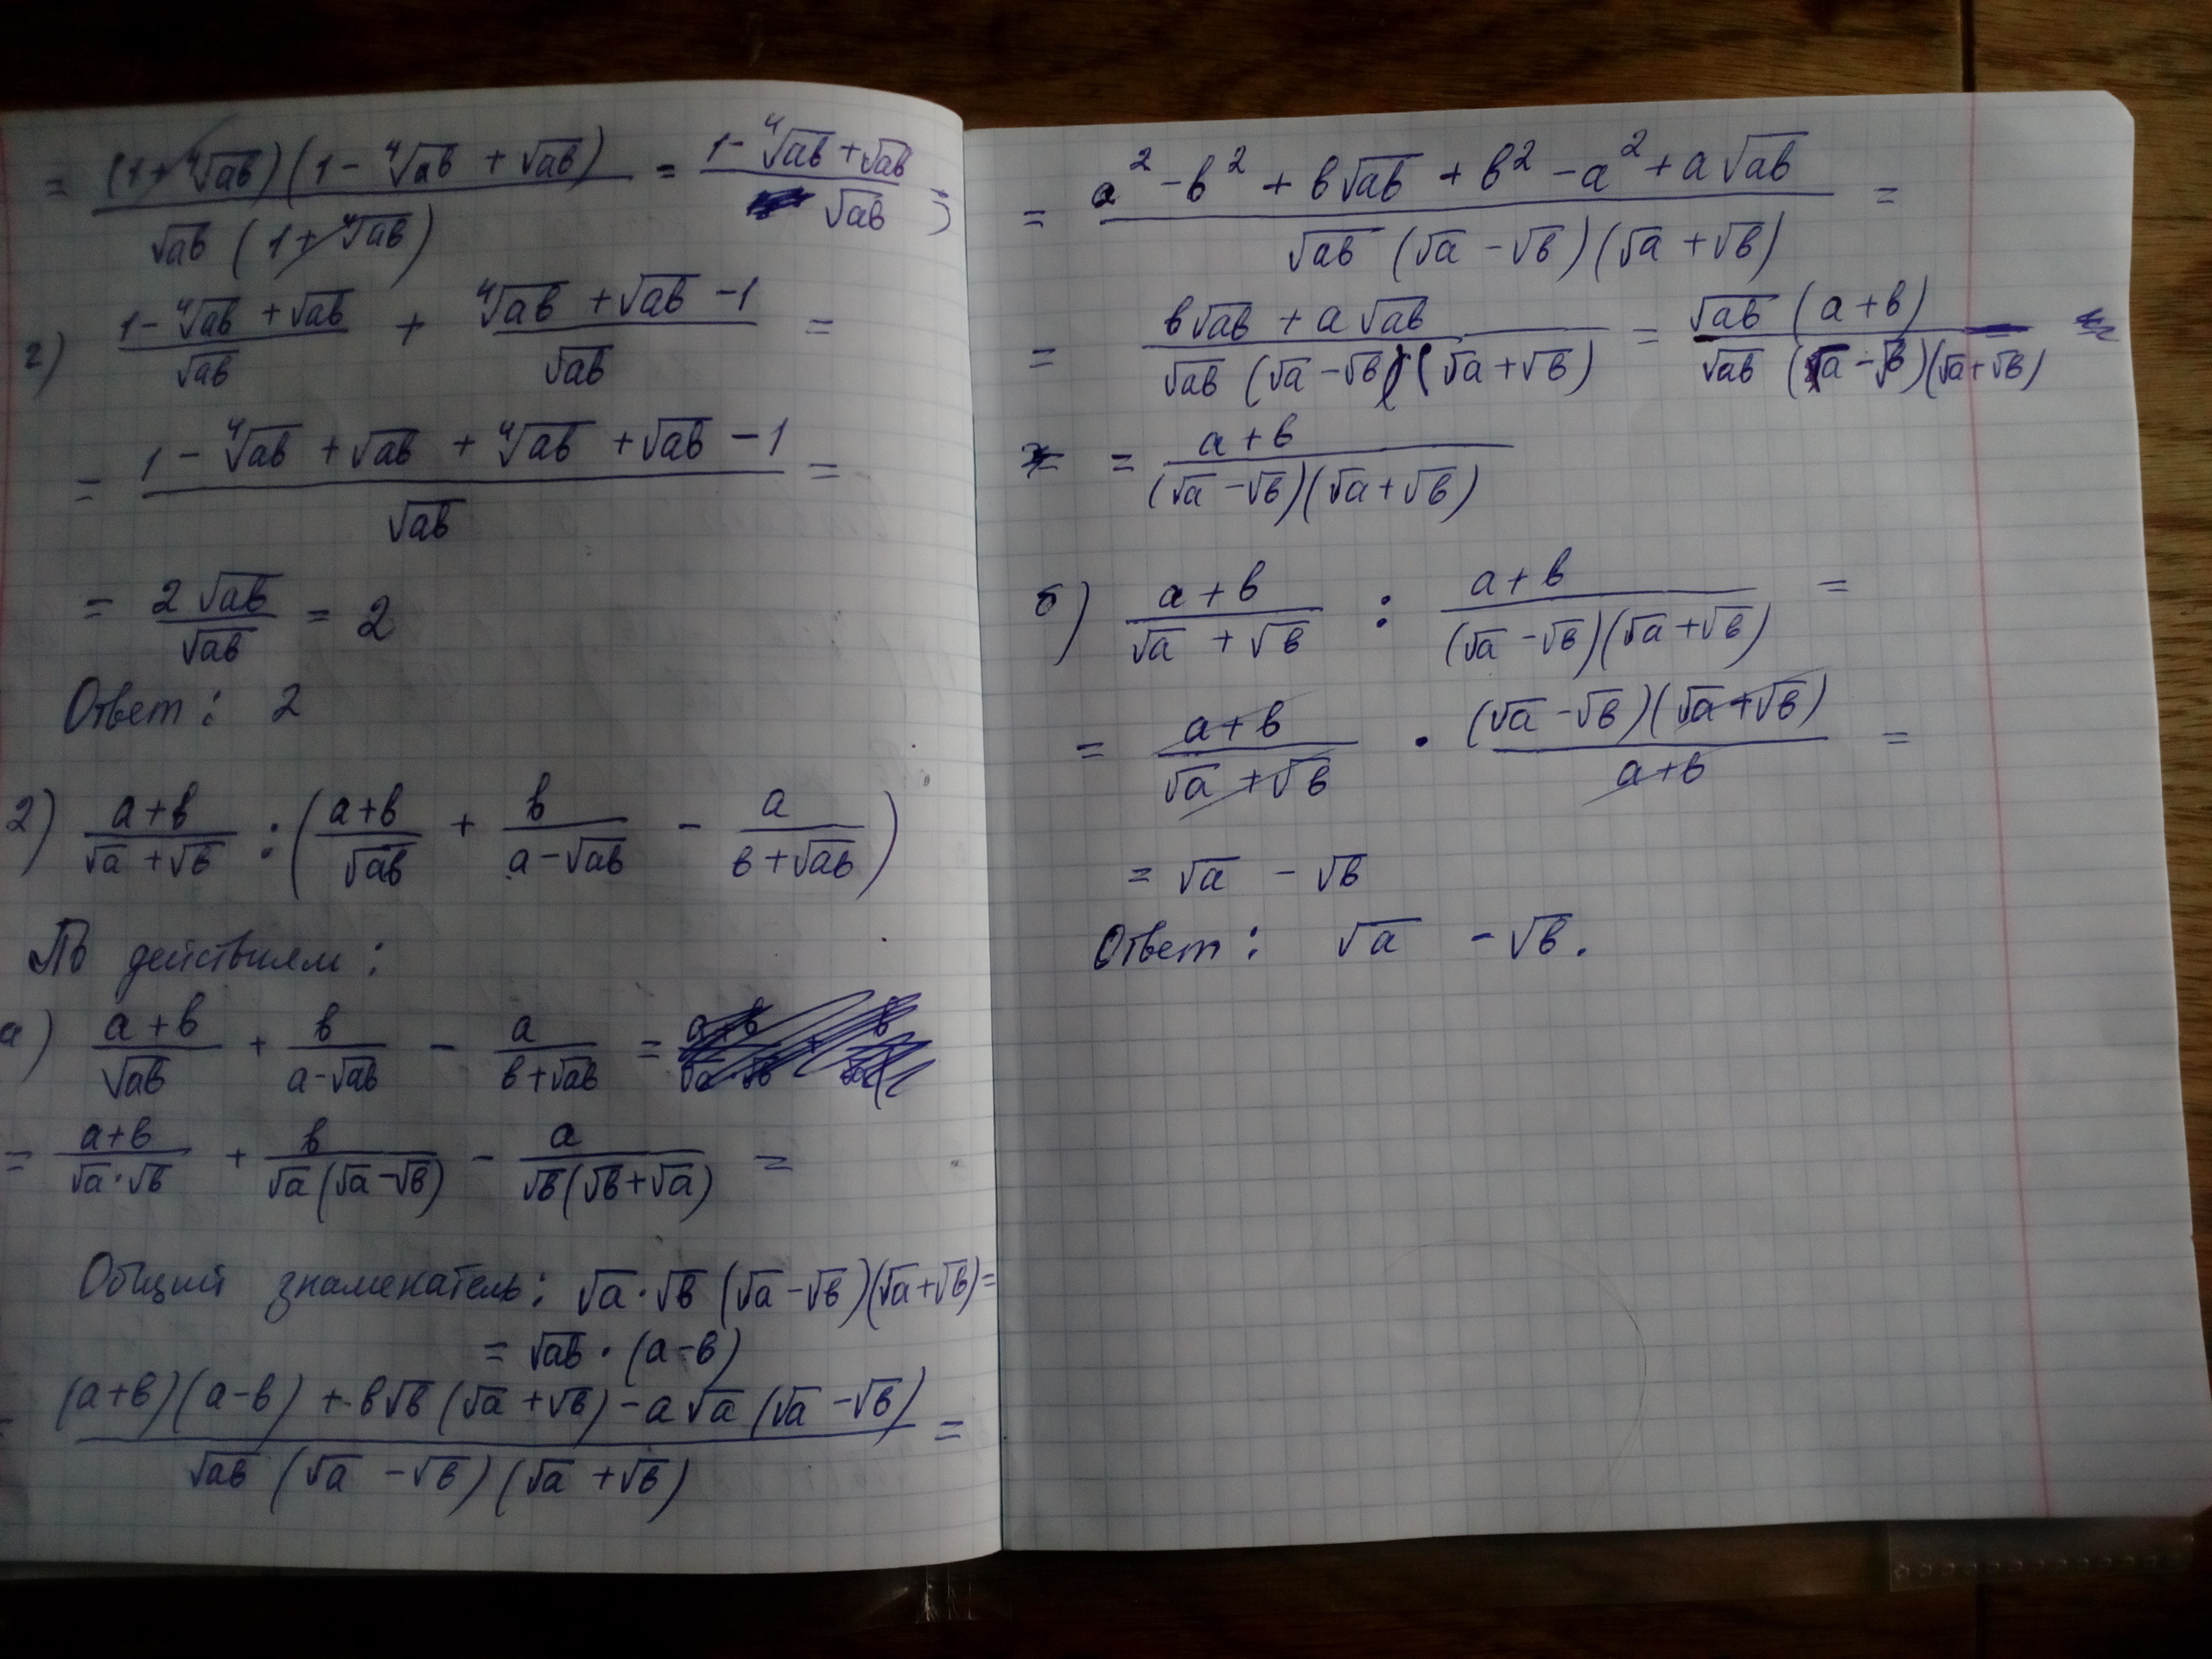 = (1+⁴√ab)(1 - ⁴√ab + √ab) / √ab (1+⁴√ab) = 1 - ⁴√ab + √ab / √ab ;
г) 1 - ⁴√ab + √ab / √ab + ⁴√ab + √ab - 1 / √ab =
= 1 - ⁴√ab + √ab + ⁴√ab + √ab - 1 / √ab =
= 2√ab / √ab = 2
Ответ: 2
2) a+b / √a + √b : (a+b / √ab + b / a - √ab - a / b + √ab)
По действиям:
а) a+b / √ab + b / a - √ab - a / b + √ab =
= a+b / √a·√b + b / √a(√a - √b) - a / √b(√b + √a) =
Общий знаменатель: √a·√b (√a - √b)(√a + √b) =
= √ab · (a - b)
= (a+b)(a-b) + b√b (√a + √b) - a√a (√a - √b) / √ab (√a - √b)(√a + √b) =
= a² - b² + b√ab + b² - a² + a√ab / √ab (√a - √b)(√a + √b) =
= b√ab + a√ab / √ab (√a - √b)(√a + √b) = √ab (a+b) / √ab (√a - √b)(√a + √b)
= a+b / (√a - √b)(√a + √b)
б) a+b / √a + √b : a+b / (√a - √b)(√a + √b) =
= a+b / √a + √b · (√a - √b)(√a + √b) / a+b =
= √a - √b
Ответ: √a - √b.